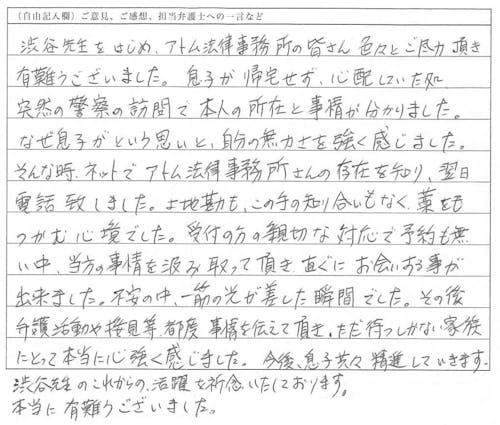 (自由記入欄)ご意見、ご感想、担当弁護士への一言など
渋谷先生をはじめ、アトム法律事務所の皆さん色々とご尽力頂き
有難うございました。息子が帰宅せず、心配していた処
突然の警察の訪問で本人の所在と事情が分かりました。
なぜ息子がという思いと、自分の無力さを強く感じました。
そんな時、ネットでアトム法律事務所さんの存在を知り、翌日
電話致しました。土地勘も、この手の知り合いもなく、藁をも
つかむ心境でした。受付の方の親切な対応で予約も無
い中、当方の事情を汲み取って頂き、直ぐにお会いする事が
出来ました。不安の中、一筋の光が差した瞬間でした。その後
弁護活動や接見等、都度事情を伝えて頂き、ただ待つしかない家族
にとって本当に心強く感じました。今後、息子共々精進していきます。
渋谷先生のこれからの、活躍を祈念いたしております。
本当に有難うございました。